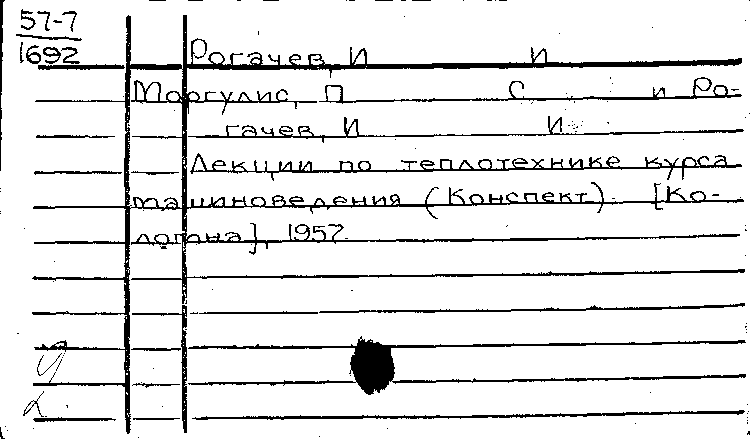 57-7
1692
Рогачев, И И
Моргулис, П С и Ро-
гачев, И И
Лекции по теплотехнике курса
машиноведения (Конспект). [Ко-
логона], 1957.